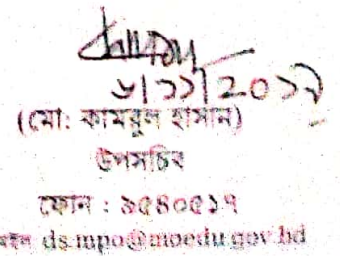 ৬|১১|20১৭
(মো: কামরুল হাসান)
উপসচিব
ফোন : ৯৫৪০৫১৭
ds.mpo@moedu.gov.bd